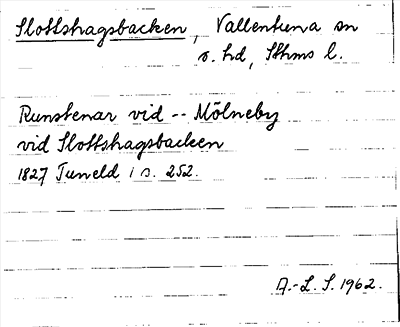 Slottshagsbacken, Vallentuna sn
s. hd, Sthms l.
Runstenar vid -- Mölneby
vid Slottshagsbacken
1827 Tuneld i s. 252.
A.-L. S. 1962.